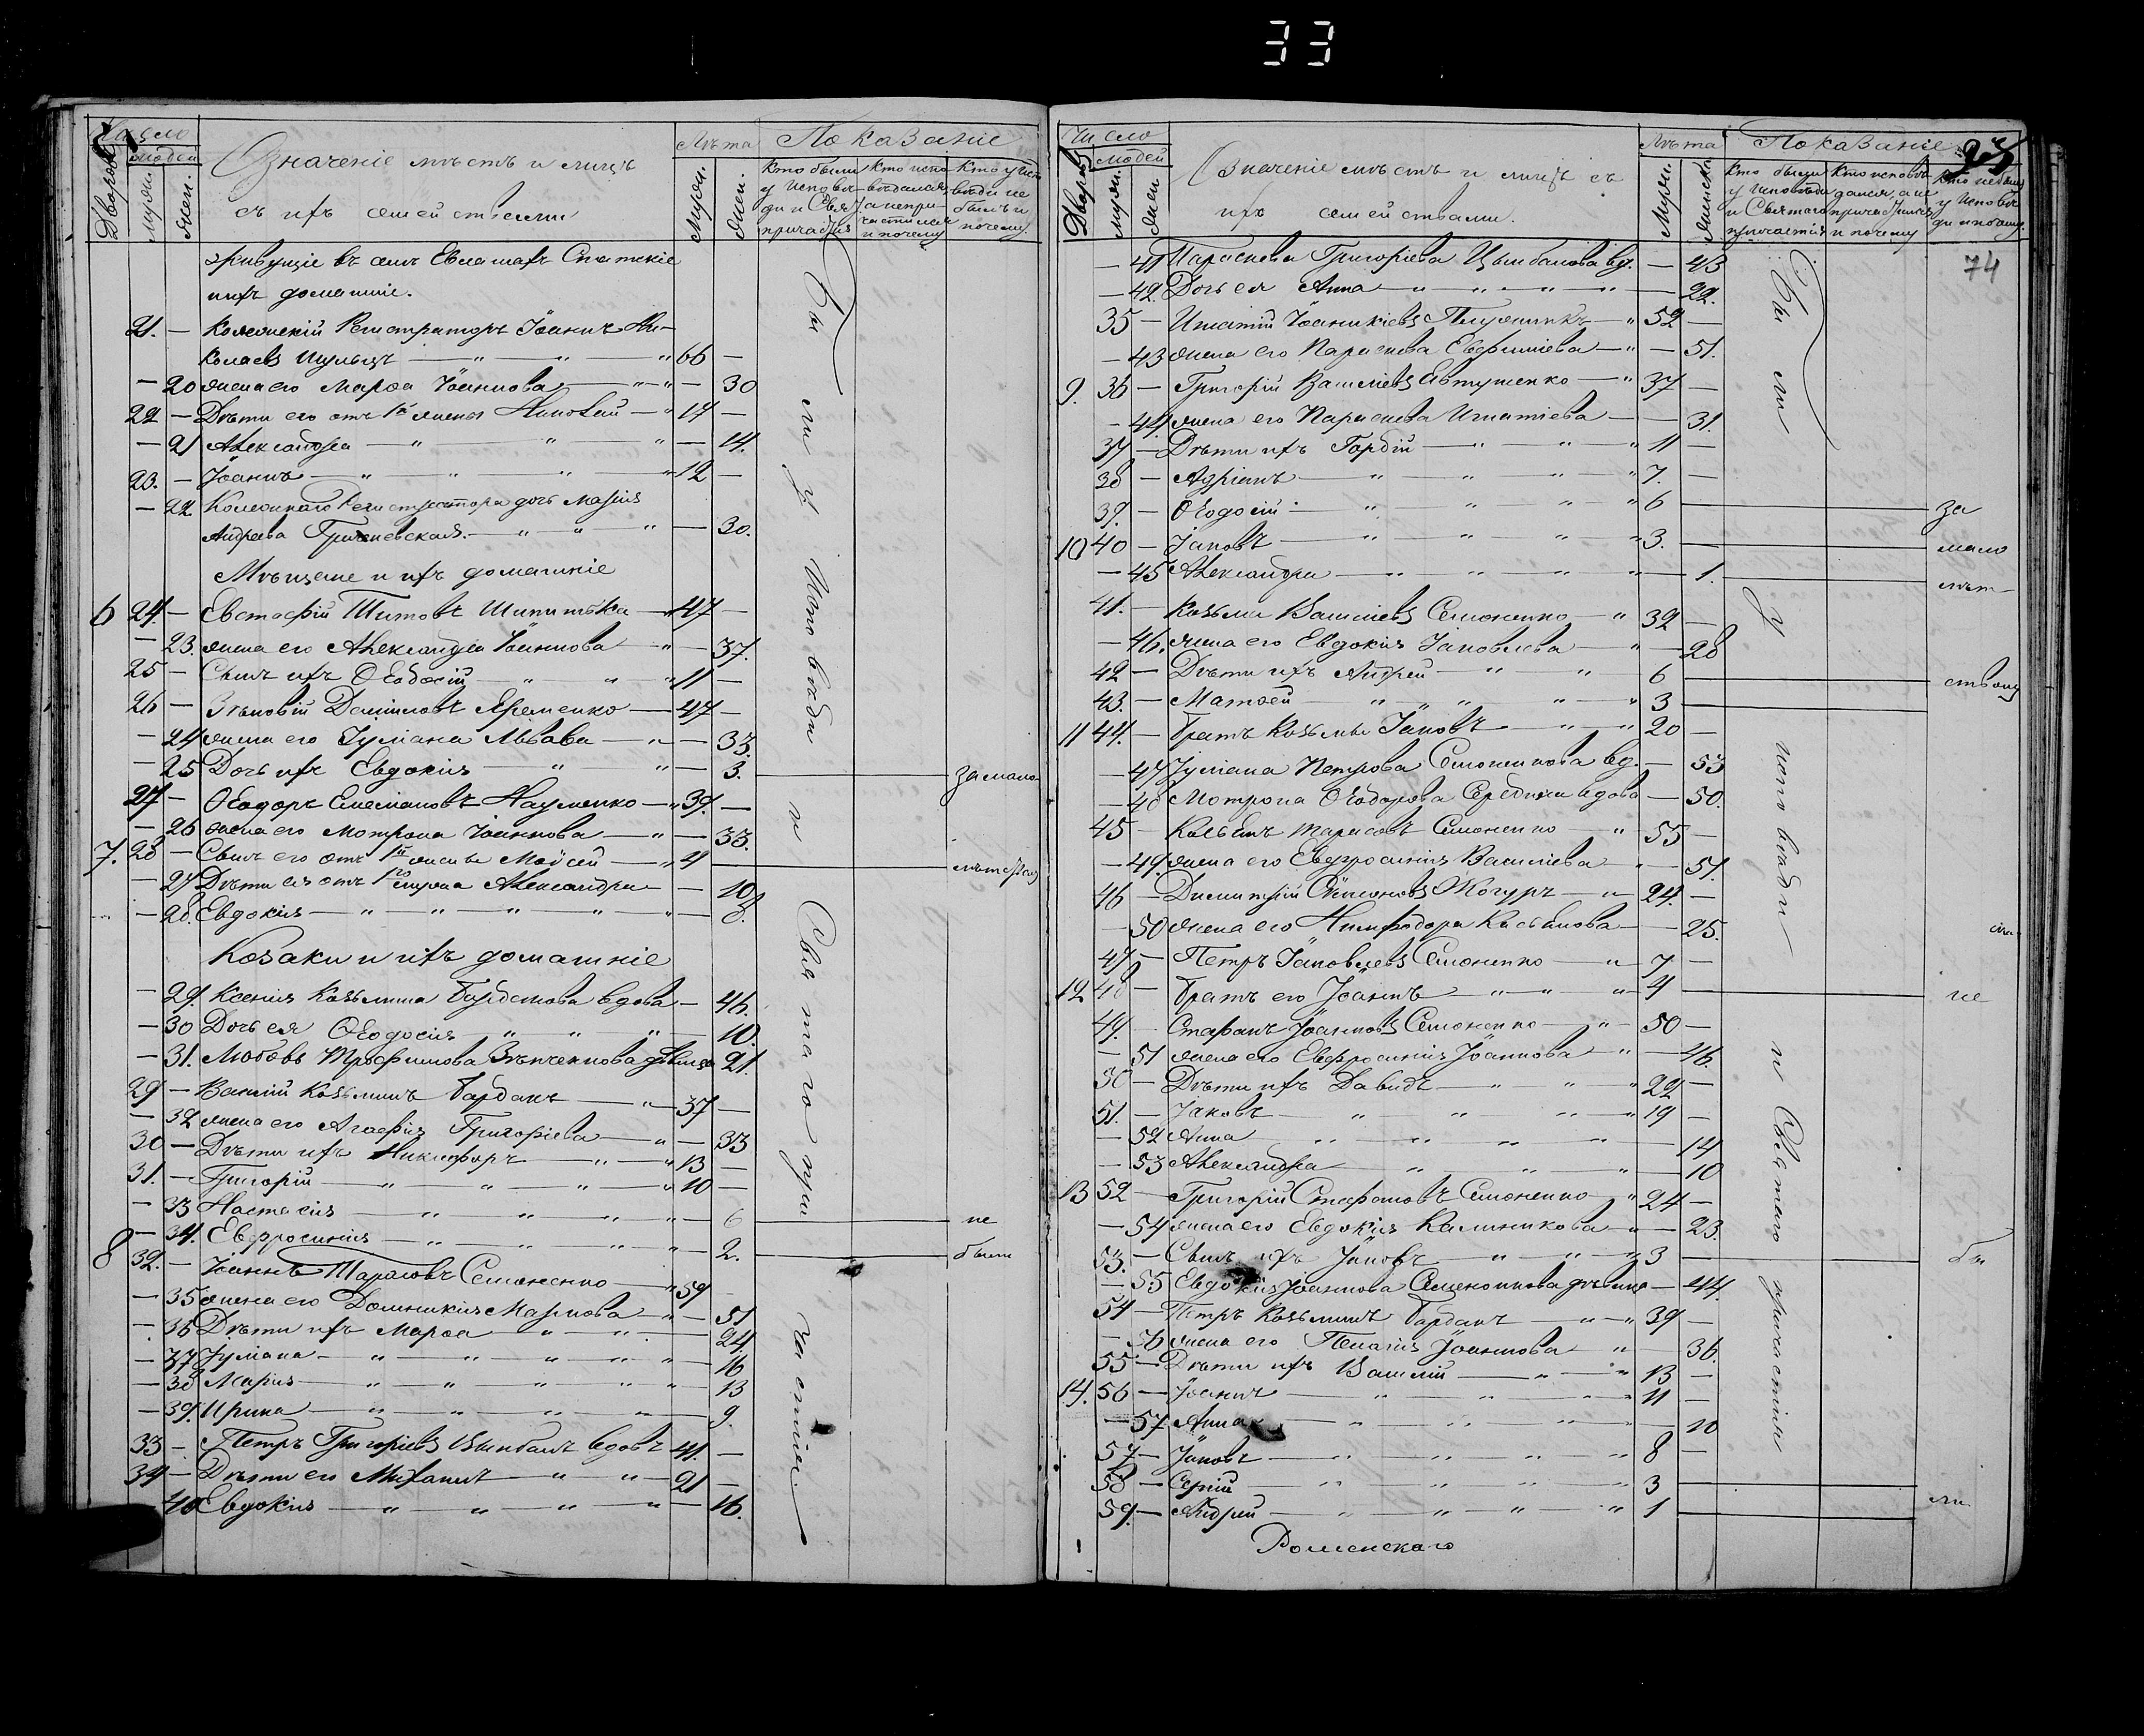 33
Число
Дворовъ
людей
мужи.
жен.
Означеніе мѣстъ и лицъ
съ ихъ семействами
Лѣта
Мужи.
жен.
Показаніе
Кто были у исповѣди и Свя. причастія
Кто исповѣдался, а не причастился и почему
Кто у исповѣди не былъ и почему.
живущіе въ селѣ Спаские
ихъ домашніе.
21. — Колежскій Регистраторъ Іоаннъ Ни-
колаевъ — 66 —
— 20 жена его Марѳа Іоаннова — 30
22 — Дѣти его отъ 1й жены Николай — 17 —
— 21 Александра — 14.
23. — Іоаннъ — 12 —
— 22. Колежскаго Регистратора дочь Марія
Андреева — 30.
Мѣщане и ихъ домашніе
6 24. — Евстафій Титовъ — 47 —
— 23. жена его Александра Іоаннова — 37.
25 — Сынъ ихъ Ѳеодосій — 11 —
26 — Зѣновій Даніиловъ Яременко — 47 —
— 24 жена его Іуліана Львова — 33.
— 25 Дочь ихъ Евдокія — 3. — за мало
27 — Ѳеодоръ Емеліановъ Науменко — 39. —
— 26 жена его Мотрона Іоаннова — 33.
7. 28 — Сынъ его отъ 1й жены Моѵсей — 4 — лѣтств
— 27 Дѣти ея отъ 1го мужа Александра — 10
— 28. Евдокія — 8.
Козаки и ихъ домашніе
— 29. Ксенія Козьмина Барбанова вдова — 46.
— 30 Дочь ея Ѳеодосія — 10.
— 31. Любовь Трофимова Зѣнченкова дѣвица 21.
29 — Василій Козьминъ Барбанъ — 37 —
— 32 жена его Агафія Григоріева — 33
30 — Дѣти ихъ Никифоръ — 13 —
31. — Григорій — 10 —
— 33 Настасія — 6 — не
— 34. Евфросинія — 2. — были
8 32. — Іоаннъ Тарасовъ Семоненко — 59 —
— 35 жена его Домникія Маркова — 51
— 36 Дѣти ихъ Марѳа — 24
— 37 Іуліана — 16
— 38 Марія — 13
— 39. Ирина — 9.
33 — Петръ Григоріевъ Цымбалъ вдовъ 41. —
34 — Дѣти его Михаилъ — 21 —
40 Евдокія — 16.
Были у исповѣди и Святаго причастія
Число
Дворовъ
людей
мужи.
жен
Означеніе мѣстъ и лицъ съ
ихъ семействами.
Лѣта
Мужи.
Женски.
Показаніе
Кто были у исповѣди и Святаго причастія
Кто исповѣдался, а не причастился и почему
Кто не былъ у исповѣди и почему.
74
— 41 Параскева Григоріева Цымбалова вд. — 43
— 42. Дочь ея Анна — 22.
35 — Игнатій Іоанникіевъ — 52 —
— 43 жена его Параскева Евфиміева — 51.
9. 36 — Григорій Василіевъ Евтушенко — 37 —
— 44 жена его Параскева Игнатіева — 31.
37 — Дѣти ихъ Гордій — 11 —
38 — Адріанъ — 7. —
39. — Ѳеодосій — 6 — за
10 40 — Іаковъ — 3. — мало
— 45 Александра — 1. — лѣт
41. — Козьма Василіевъ Семоненко — 39 —
— 46. жена его Евдокія Іаковлева — 28
42 — Дѣти ихъ Андрей — 6 — ствомъ
43. — Матѳей — 3
11 44. — Братъ Козьмы Іаковъ — 20 —
— 47 Іуліана Петрова Семоненкова вд. — 53
— 48 Мотрона Ѳеодорова вдова — 50.
45 — Касьянъ Тарасовъ Семоненко — 55 —
— 49. жена его Евфросинія Василіева — 51.
46 — Димитрій Симоновъ — 24. —
— 50 жена его Нимфодора Касьянова — 25.
47 — Петръ Іаковлевъ Семоненко — 7 —
12 48 — Братъ его Іоаннъ — 4 — не
49. — Стефанъ Іоанновъ Семоненко — 50 —
— 51 жена его Евфросинія Іоаннова — 46.
50 — Дѣти ихъ Давидъ — 22 —
51. — Іаковъ — 19 —
— 52 Анна — 14
— 53 Александра — 10
13 52 — Григорій Стефановъ Семоненко — 24 —
— 54 жена его Евдокія Калиникова — 23.
53. — Сынъ ихъ Іаковъ — 3 — бы
— 55 Евдокія Іоаннова Семоненкова дѣвица — 44.
54 — Петръ Козьминъ Барбанъ — 39 —
— 56 жена его Пелагія Іоаннова — 36.
55 — Дѣти ихъ Василій — 13 —
14. 56 — Іоаннъ — 11 —
— 57 Анна — 10
57 — Іаковъ — 8 —
58 — Сергій — 3
59. — Андрей — 1 — ли
Роменскаго
Были у исповѣди и Святаго причастія